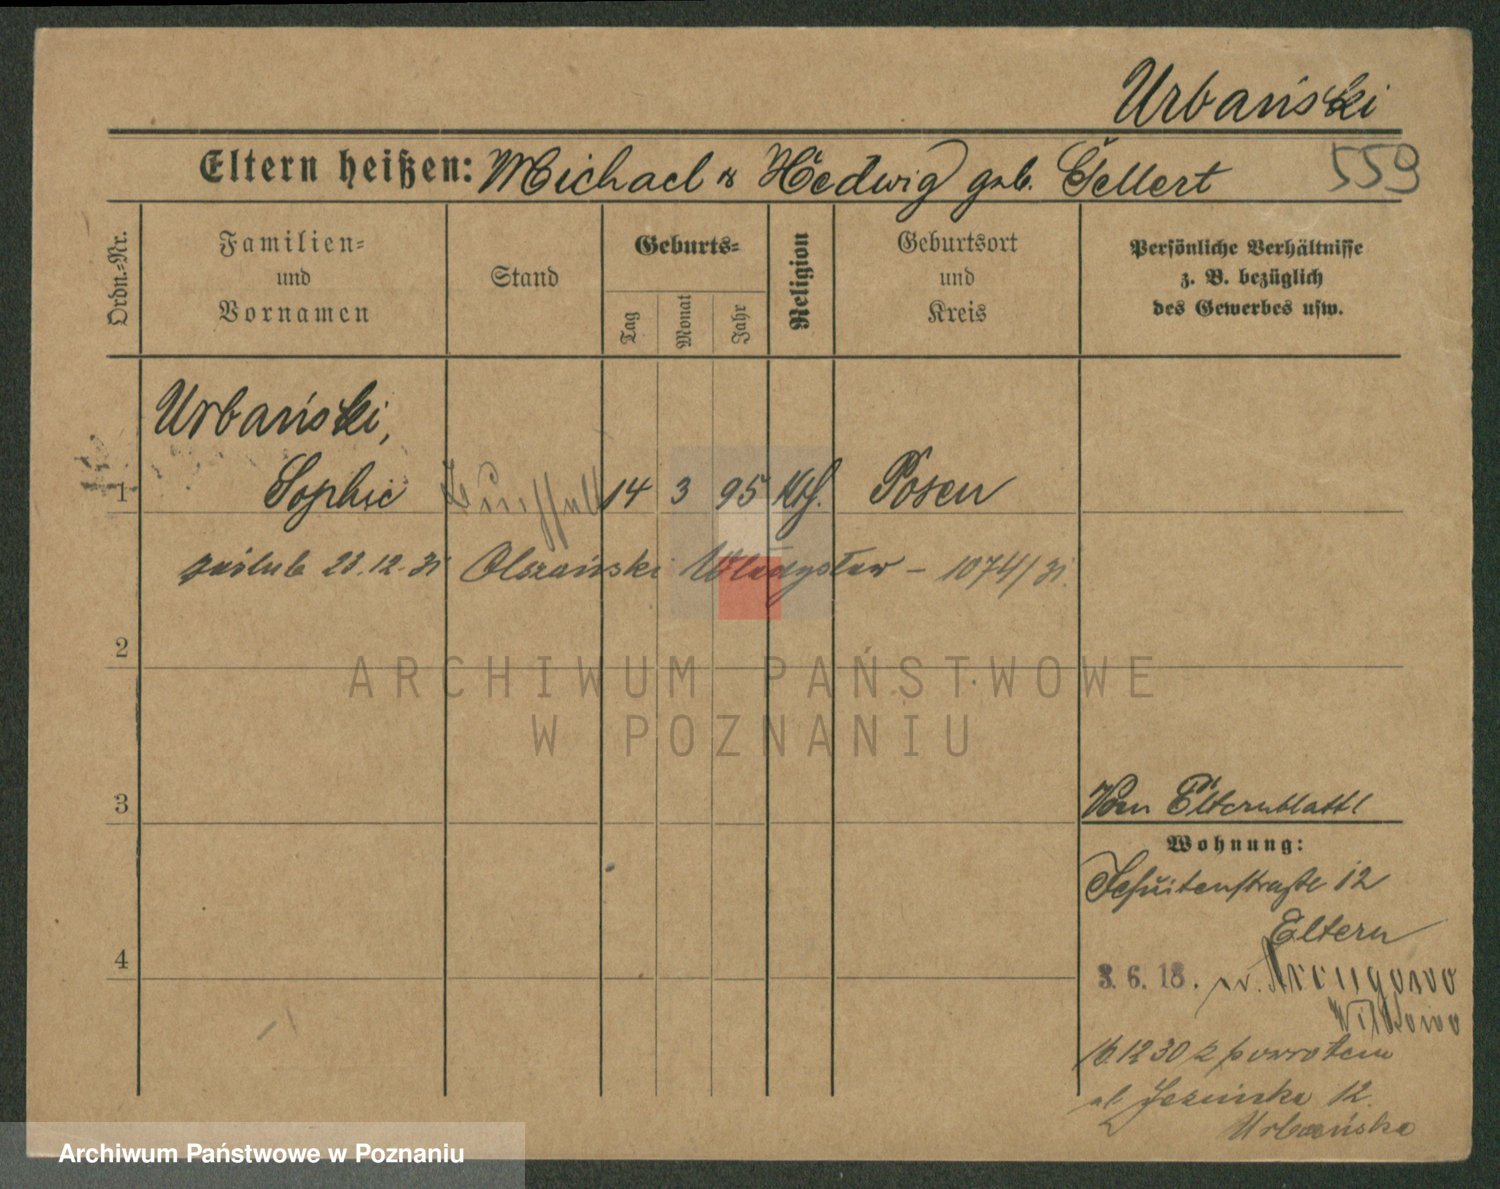 Urbański
Eltern heißen: Michael & Hedwig geb. Gellert 559
Ordn.-Nr.
Familien- und Vornamen
Stand
Geburts-
Tag
Monat
Jahr
Religion
Geburtsort und Kreis
Persönliche Verhältnisse
z. B. bezüglich
des Gewerbes usw.
Urbański,
1 Sophie 14 3 95 Kth. Posen
zaślub 28.12.31 Olszański Władysław – 1074/31.
2
ARCHIWUM PAŃSTWOWE
W POZNANIU
3
Vom Elternblatt
Wohnung:
Jesuitenstraße 12
Eltern
4
3. 6. 18.
16.12 30 z powrotem
ul. Jezuicka 12.
Urbańska
Archiwum Państwowe w Poznaniu